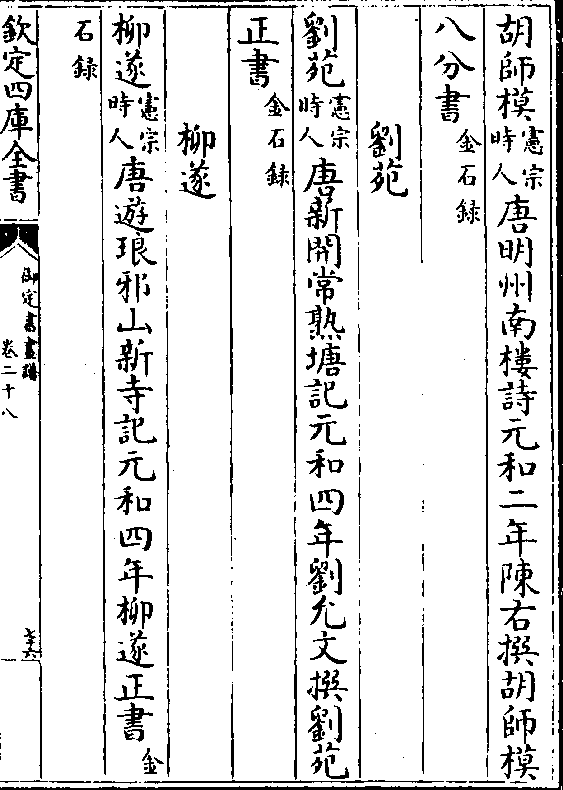 胡師模憲宗時人唐明州南樓詩元和二年陳右撰胡師模
八分書金石錄
劉苑
劉苑憲宗時人唐新開常熟塘記元和四年劉允文撰劉苑
正書金石錄
柳遂
柳遂憲宗時人唐遊琅邪山新寺記元和四年柳遂正書金
石錄
欽定四庫全書
御定書畫譜
卷二十八